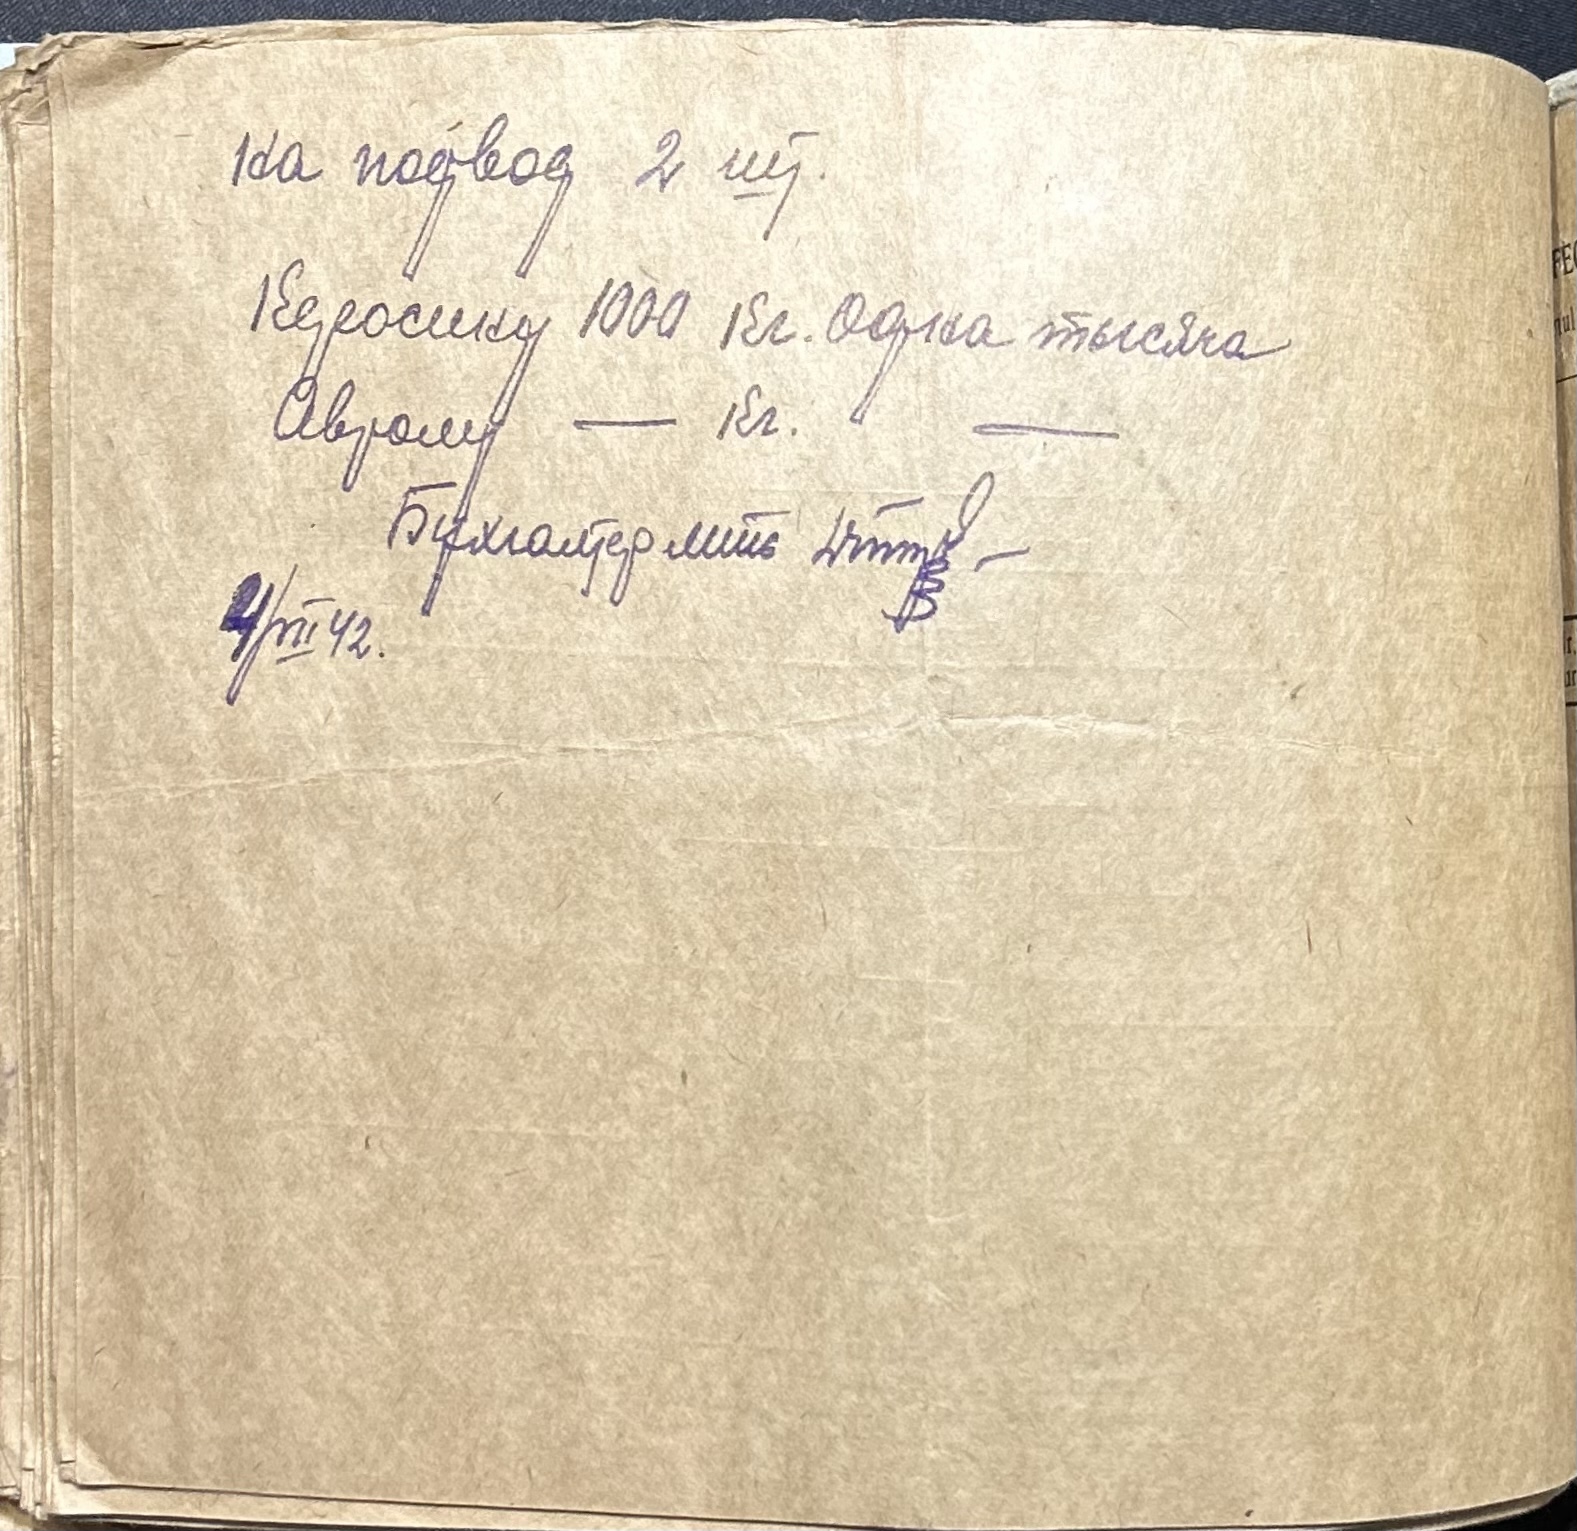 на подвод 2 шт.
Керосину 1000 Кг. Одна тысяча
Автолу — Кг. —
Бухгалтер мтс
4/VII 42.
FE